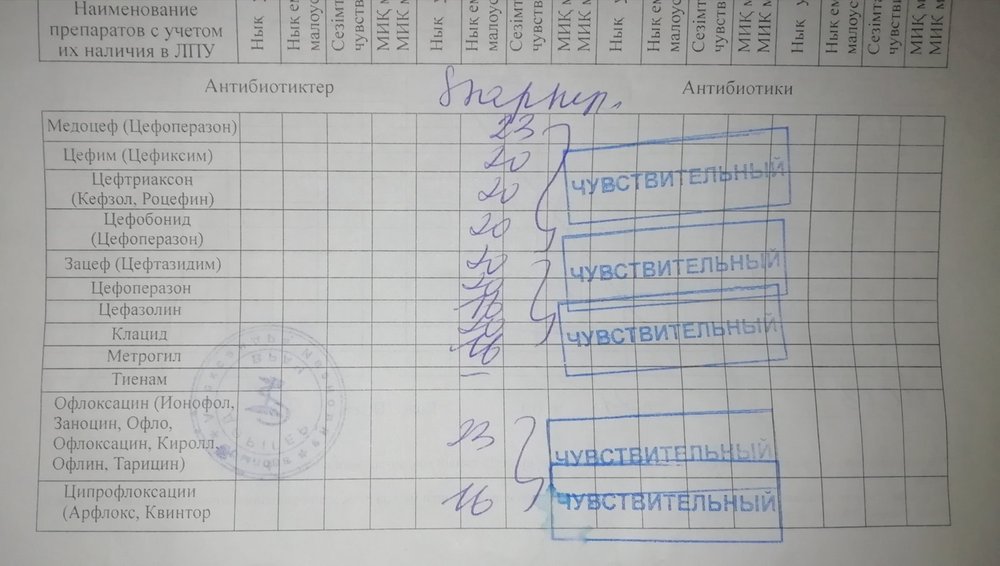 Наименование
препаратов с учетом
их наличия в ЛПУ
Нык у
Нык ем
малоус
Сезімт
чувств
МИҚ м
МИК м
Нык у
Нык ем
малоус
Сезімт
чувств
МИҚ м
МИК м
Нык у
Нык ем
малоус
Сезімт
чувств
МИҚ м
МИК м
Нык у
Нык ем
малоус
Сезімт
чувстви
МИҚ м
МИК м
Антибиотиктер Антибиотики
Медоцеф (Цефоперазон) 23
Цефим (Цефиксим) 20
ЧУВСТВИТЕЛЬНЫЙ
Цефтриаксон
(Кефзол, Роцефин) 20
Цефобонид
(Цефоперазон) 20
Зацеф (Цефтазидим) 20
ЧУВСТВИТЕЛЬНЫЙ
Цефоперазон 20
Цефазолин 16
Клацид 20
ЧУВСТВИТЕЛЬНЫЙ
Метрогил 16
Тиенам —
Офлоксацин (Ионофол,
Заноцин, Офло,
Офлоксацин, Киролл,
Офлин, Тарицин) 23
ЧУВСТВИТЕЛЬНЫЙ
Ципрофлоксации
(Арфлокс, Квинтор 16
ЧУВСТВИТЕЛЬНЫЙ